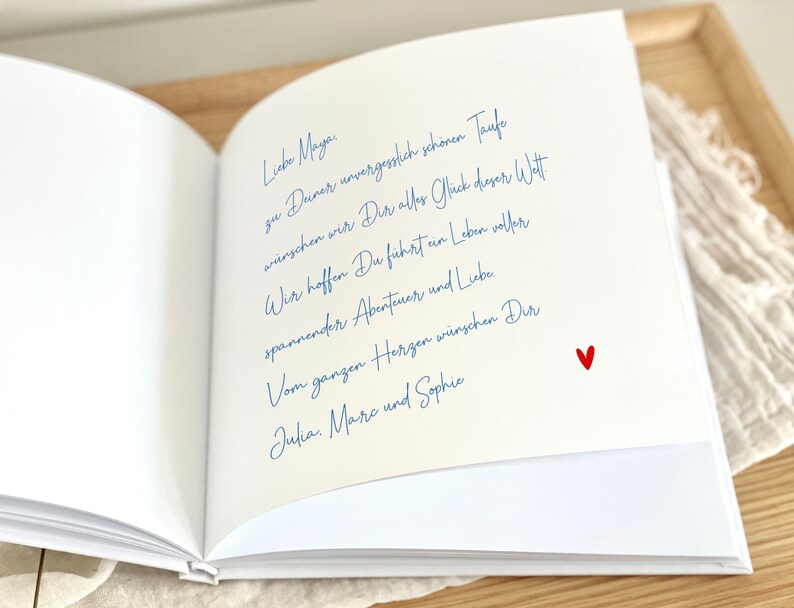 Liebe Maya.
zu Deiner unvergesslich schönen Taufe
wünschen wir Dir alles Glück dieser Welt.
Wir hoffen Du führt ein Leben voller
spannender Abenteuer und Liebe.
Vom ganzen Herzen wünschen Dir
Julia. Marc und Sophie